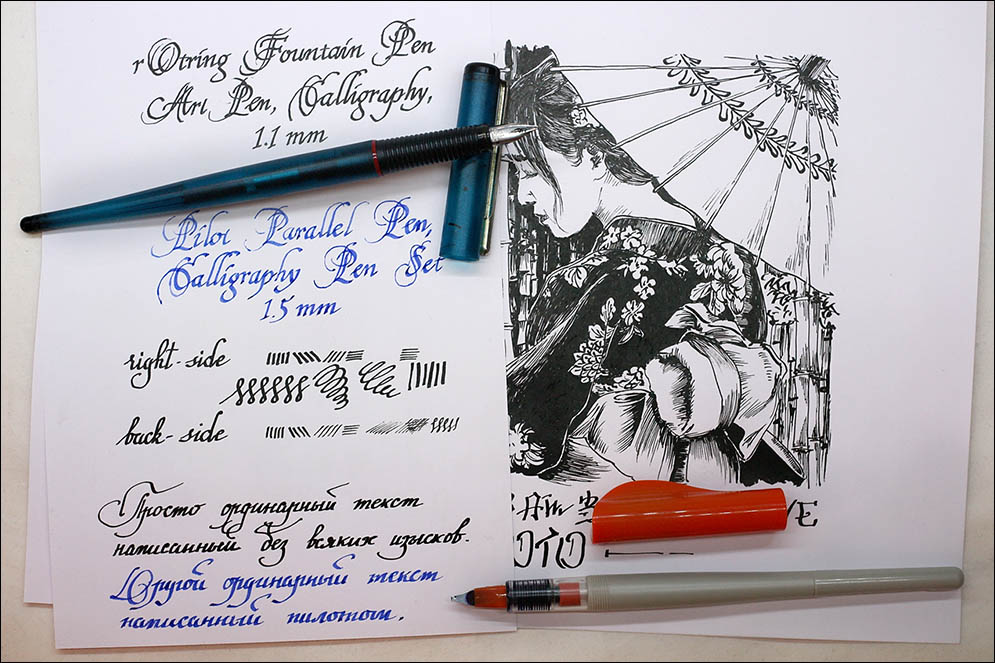 rOtring Fountain Pen
Art Pen, Calligraphy,
1.1 mm
Pilot Parallel Pen,
Calligraphy Pen Set
1.5 mm
right-side
back-side
Просто ординарный текст
написанный без всяких изысков.
Другой ординарный текст
написанный пилотом.